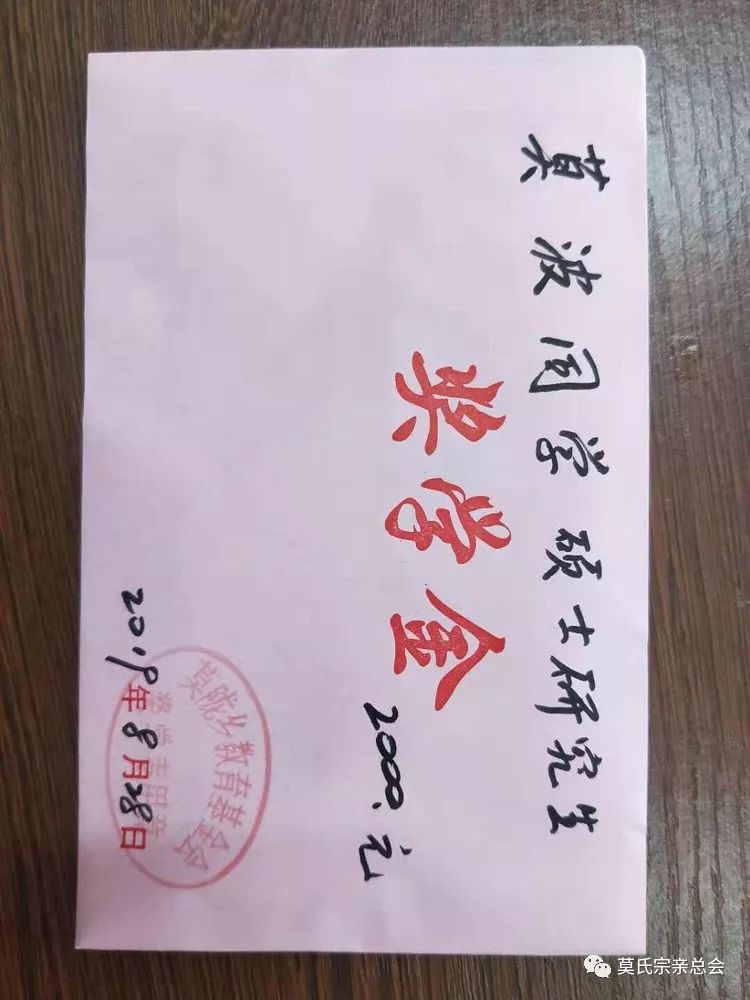 莫波同学硕士研究生
奖学金
2000.元
教育基金会
2019年8月28日
莫氏宗亲总会